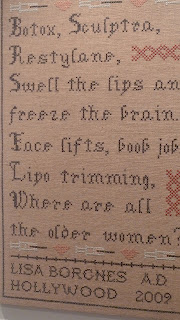 Botox, Sculptra,
Restylane,
Swell the lips an
freeze the brain.
Face lifts, boob job
Lipo trimming,
Where are all
the older women?
LISA BORGNES A.D.
HOLLYWOOD 2009